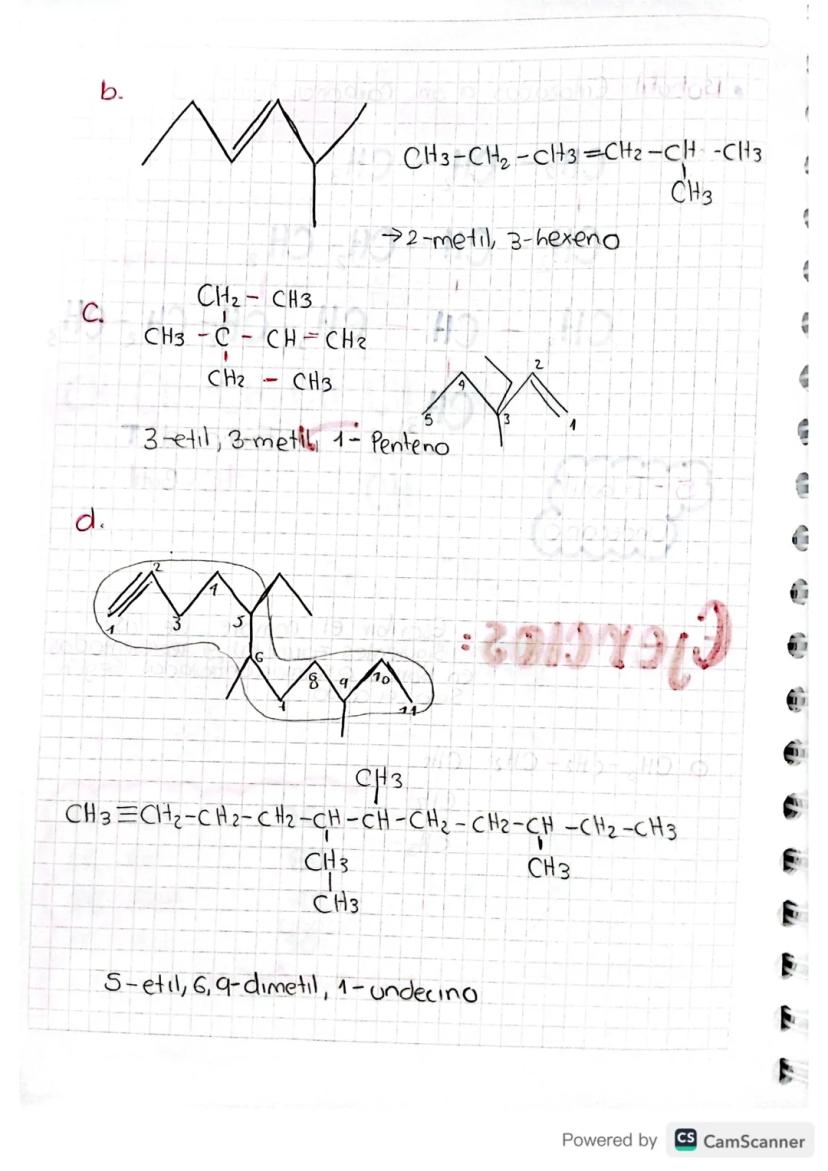 b.
CH3-CH2-CH3=CH2-CH-CH3
CH3
→2-metil, 3-hexeno
c.
CH2- CH3
CH3 -C - CH=CH2
CH2 - CH3
5 4 3 2 1
3-etil, 3-metil, 1- Penteno
d.
1 2 3 4 5
6 7 8 9 10 11
CH3
CH3≡CH2-CH2-CH2-CH-CH-CH2-CH2-CH-CH2-CH3
CH3 CH3
CH3
5-etil, 6,9-dimetil, 1-undecino
Ejercicios:
Powered by CS CamScanner